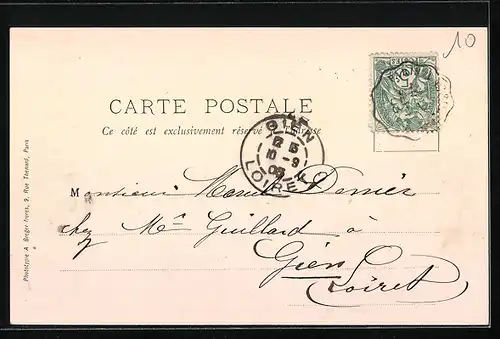 10
CARTE POSTALE
Ce côté est exclusivement réservé à l'adresse
GIEN
12 15
10 - 9
03
LOIRET
Monsieur Marcel Denier
chez Mᵉ Guillard à
Gien
Loiret
Phototypie A. Breger frères, 9, Rue Thénard, Paris